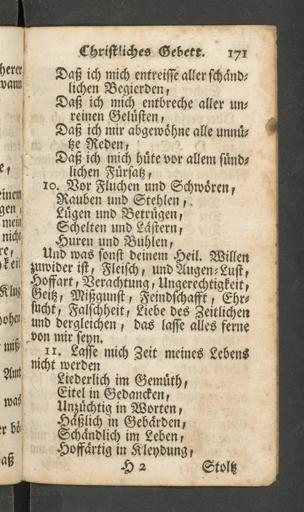 Christliches Gebett. 171
Daß ich mich entreisse aller schänd-
lichen Begierden,
Daß ich mich entbreche aller un-
reinen Gelüsten,
Daß ich mir abgewöhne alle unnü-
tze Reden,
Daß ich mich hüte vor allem sünd-
lichen Fürsatz,
10. Vor Fluchen und Schwören,
Rauben und Stehlen,
Lügen und Betrügen,
Schelten und Lästern,
Huren und Buhlen,
Und was sonst deinem Heil. Willen
zuwider ist, Fleisch, und Augen-Lust,
Hoffart, Verachtung, Ungerechtigkeit,
Geitz, Mißgunst, Feindschafft, Ehr-
sucht, Falschheit, Liebe des Zeitlichen
und dergleichen, das lasse alles ferne
von mir seyn.
11. Lasse mich Zeit meines Lebens
nicht werden
Liederlich im Gemüth,
Eitel in Gedancken,
Unzüchtig in Worten,
Häßlich in Gebärden,
Schändlich im Leben,
Hoffärtig in Kleydung,
H 2 Stoltz